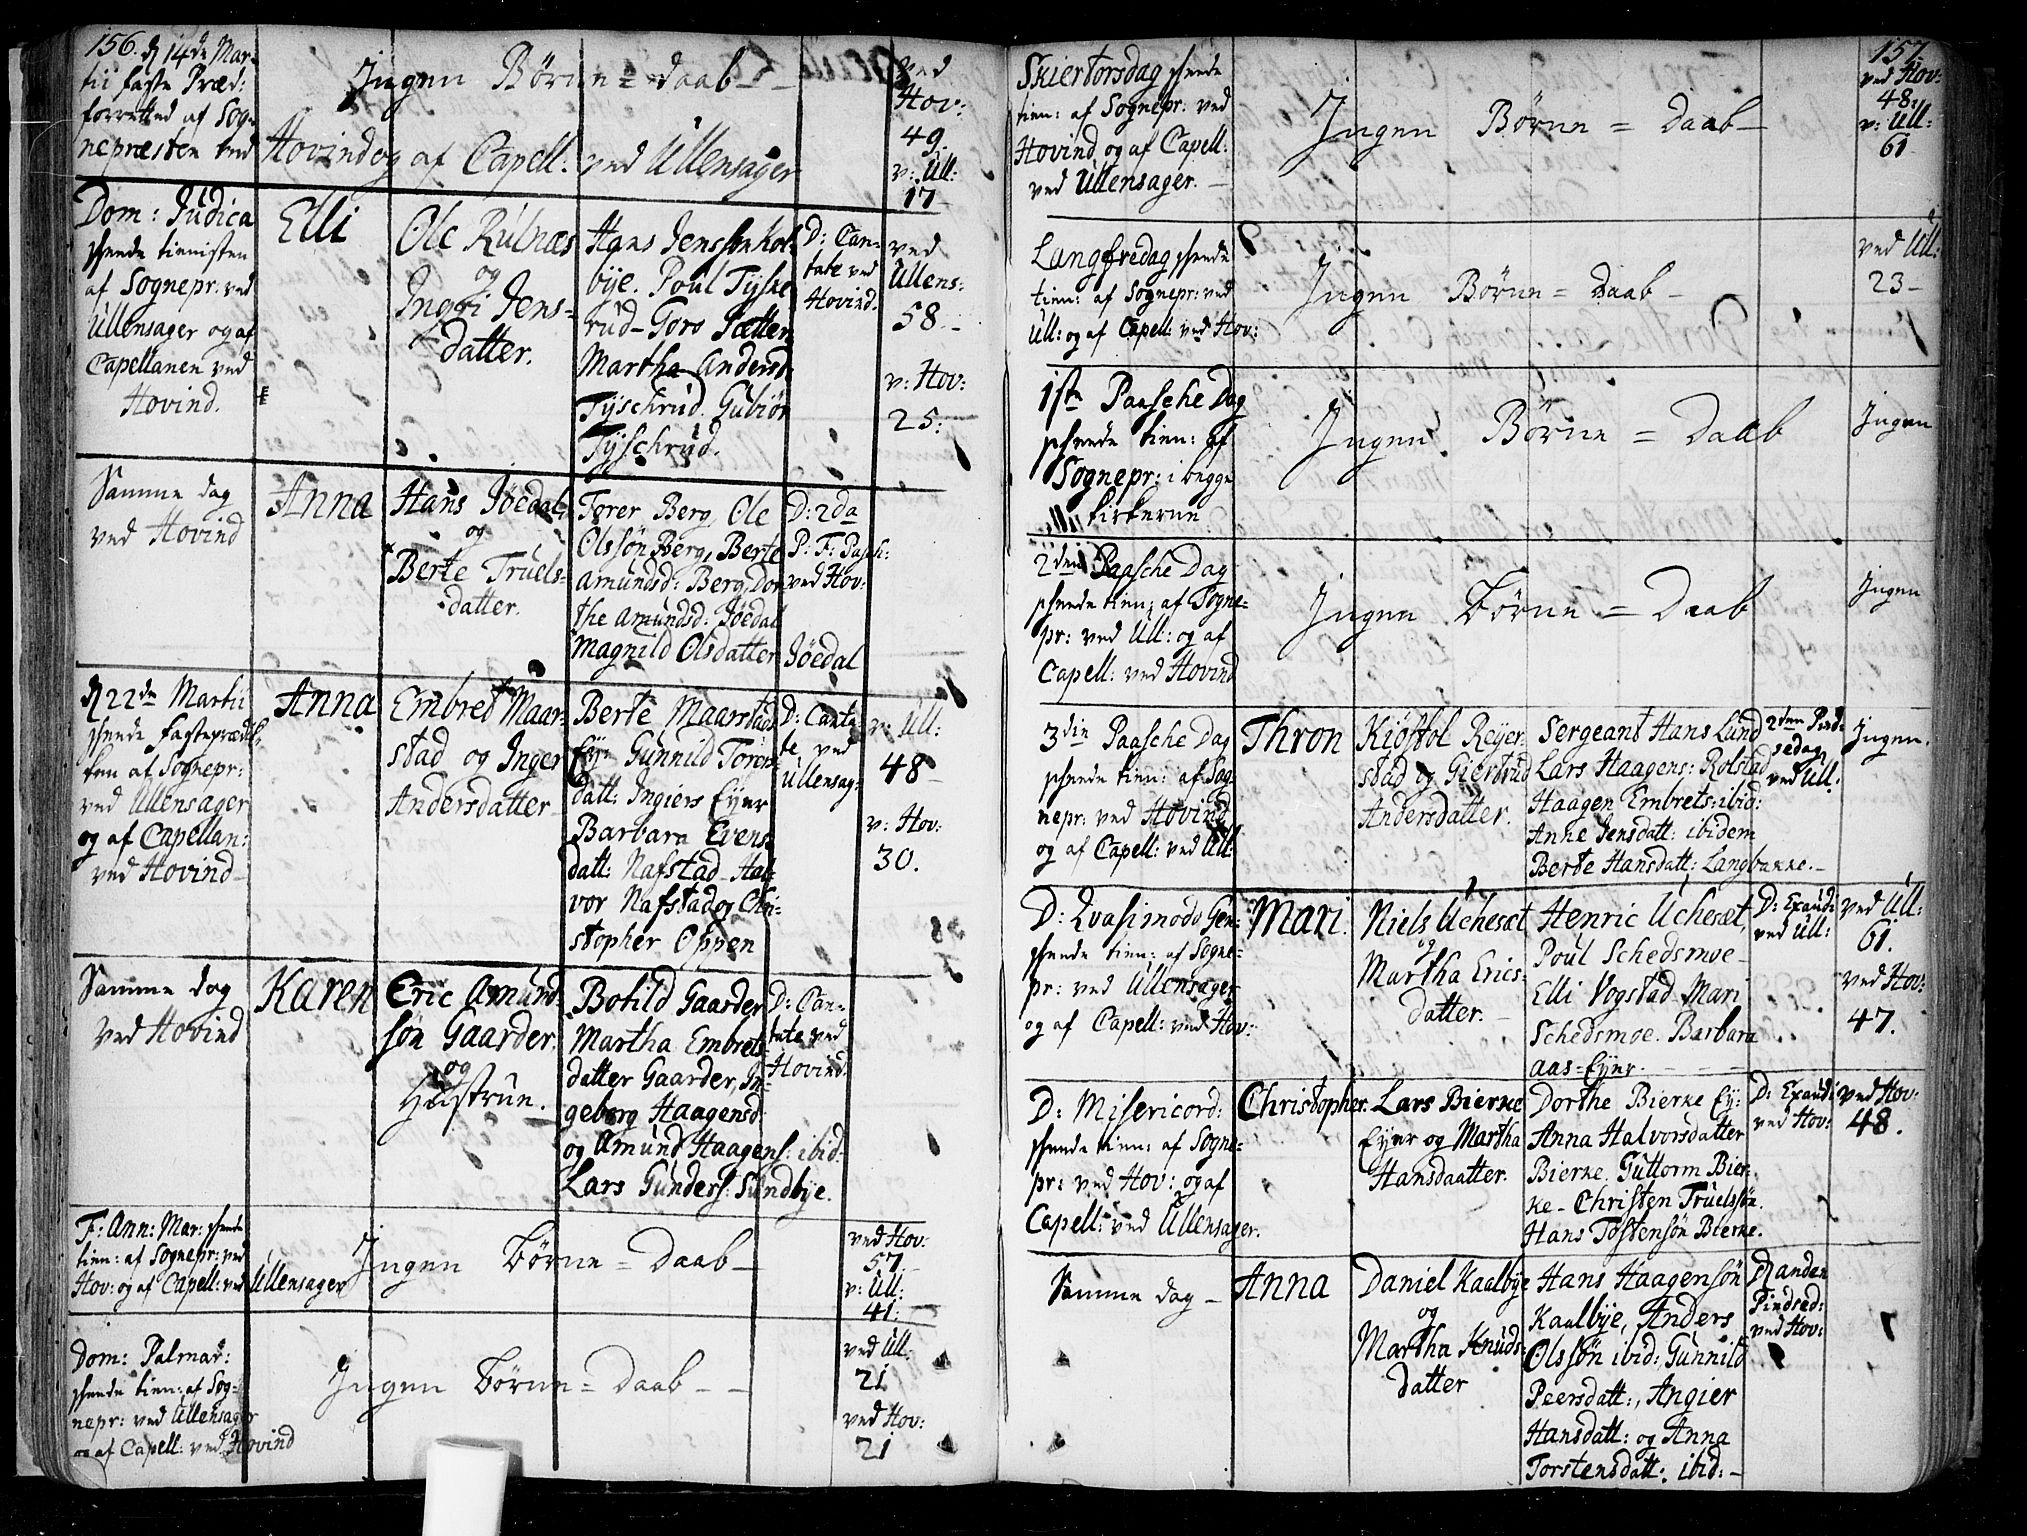 156. d 14de Mar-
tii faste Præd:
forretted af Sog-
nepræsten ved Hovind og af Capell: ved Ullensager
Ingen Børne = daab -
ved
Hov:
49.
v: Ull:
17
Dom: Judica
skeede tienisten
af Sognepr: ved
Ullensager og af
Capellanen ved
Hovind.
Elli
Ole Rulnæs
og
Ingri Jens-
datter.
Hans Jenssøn Kol-
bye. Poul Tyske
rud - Goro Sætter
Martha Andersd:
Tyschrud. Gubiør
Tyschrud.
D: Can-
tate ved
Hovind.
ved
Ullens:
58. -
v: Hov:
25:
Samme dag
ved Hovind
Anna
Hans Jöedal
og
Berte Truels-
datter.
Torer Berg, Ole
Olssøn Berg, Berte
Amundsd: Berg, Dor-
the Amundsd: Jöedal
Magnild Olsdatter Jöedal
D: 2da
P: F: Pasch:
ved Hov:
d 22de Martii
skeede fasteprædi-
ken af Sognepr:
ved Ullensager
og af Capellan:
ved Hovind -
Anna
Embret Maar-
stad og Inger
Andersdatter
Berte Maarstad
Ey: Gunnild Toren
datt: Ingiers Eyer
Barbara Evens
datt: Nafstad - Hal-
vor Nafstad og Chri-
stopher Oppen
D: Canta-
te ved
Ullensag:
v: Ull:
48 -
v: Hov:
30.
Samme dag
ved Hovind
Karen
Eric Amund-
søn Gaarder.
og
Hustrue.
Botild Gaarder
Martha Embrets-
datter Gaarder, In-
geborg Haagensd:
og Amund Haagens: ibid.
Lars Gunders: Sundbye.
D: Can-
tate ved
Hovind.
F: Ann: Mar: skeede
tien: af Sognepr: ved
Hov: og af Capell: ved Ullensager
Ingen Børne = Daab -
ved Hov:
57
v: Ull:
41:
Dom: Palmar:
skeede tien: af Sog-
nepr: ved Ullensager
og af Capell: ved Hovind
Ingen Børne = Daab - -
ved Ull:
21
ved Hov:
21
157.
Skiertorsdag skeede
tien: af Sognepr: ved
Hovind og af Capell:
ved Ullensager. -
Ingen Børne = Daab -
ved Hov:
48:
v: Ull:
61
Langfredag skeede
tien: af Sognepr: ved
Ull: og af Capell: ved Hov:
Ingen Børne = Daab -
ved Ull:
23 -
1ste Paasche Dag
skeede tien: af
Sognepr: i begge
Kirkerne
Ingen Børne = Daab
Ingen
2den Paasche Dag
skeede tien: af Sogne-
pr: ved Ull: og af
Capell: ved Hovind
Ingen Børne = Daab
Ingen
3die Paasche Dag
skeede tien: af Sog-
nepr: ved Hovind
og af Capell: ved Ull:
Thron
Kiøstol Reyer-
stad og Giertrud
Andersdatter.
Sergeant Hans Lund
Lars Haagens: Rolstad
Haagen Embrets: ibid:
Anne Jensdatt: ibidem
Berte Hansdatt: Langbakke. -
2den Pind-
sedag
ved Ull:
Ingen.
D: Qvasimodo Gen-
skeede tien: af Sogne-
pr: ved Ullensager
og af Capell: ved Hov:
Mari.
Niels Uchesæt
og
Martha Erics-
datter. -
Henric Uchesæt,
Poul Schedsmoe -
Elli Vogstad - Mari
Schedsmoe. Barbara
aas = Eyer.
D: Exaudi
ved Ull:
ved Ull:
61.
ved Hov:
47.
D: Misericord:
skeede tien: af Sogne-
pr: ved Hov: og af
Capell: ved Ullensager.
Christopher.
Lars Bierke
Eyer og Martha
Hansdaatter.
Dorthe Bierke Ey:
Anna Halvorsdatter
Bierke. Guttorm Bier-
ke - Christen Truelssøn.
Hans Tostensøn Bierke.
D: Exaudi
ved Hov:
ved Hov:
48.
Samme dag -
Anna
Daniel Kaalbye
og
Martha Knuds-
datter
Hans Haagensøn
Kaalbye, Anders
Olssøn ibid:, Gunnild
Peersdatt:, Angier
Hansdatt: og Anna
Torstensdatt: ibid: -
D anden
Pindsed:
ved Hov: